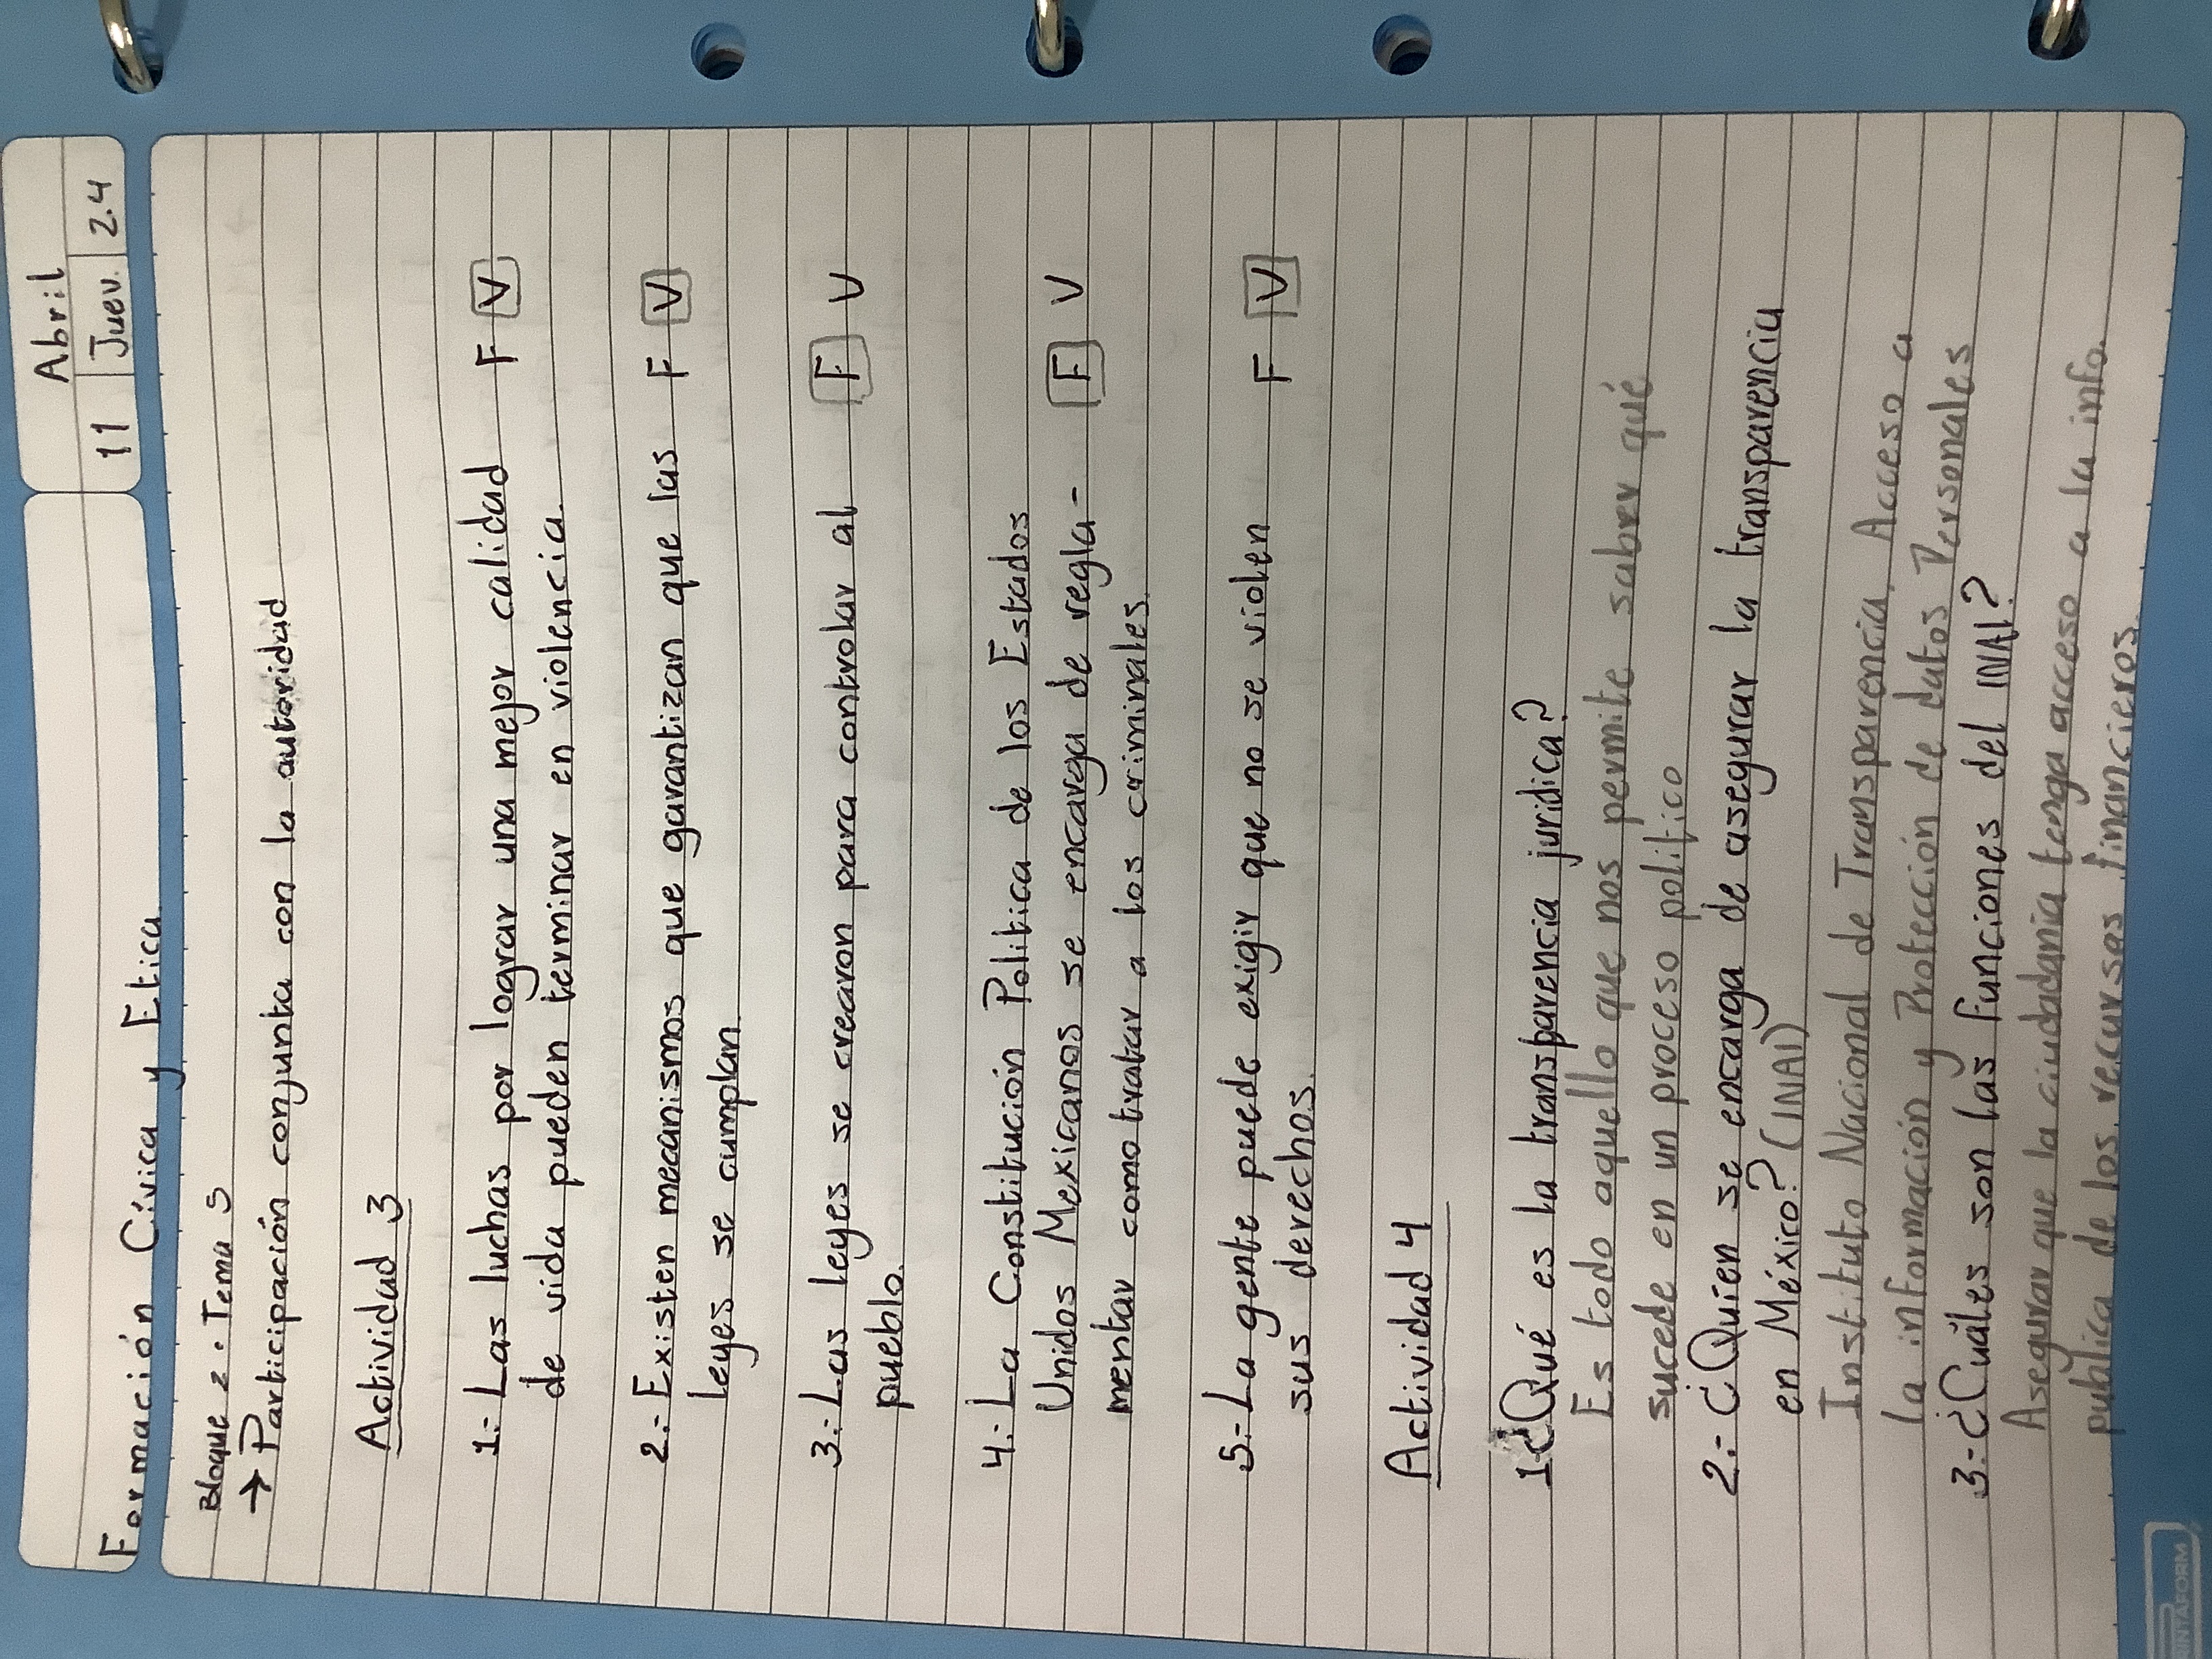 Abril
11 Juev. 24
Formación Cívica y Etica
Bloque 2 · Tema 5
→ Participación conjunta con la autoridad
Actividad 3
1.- Las luchas por lograr una mejor calidad F V
de vida pueden terminar en violencia.
2.- Existen mecanismos que garantizan que las F V
leyes se cumplan.
3.- Las leyes se crearon para controlar al F V
pueblo.
4.- La Constitución Politica de los Estados
Unidos Mexicanos se encarga de regla- F V
mentar como tratar a los criminales.
5.- La gente puede exigir que no se violen F V
sus derechos.
Actividad 4
1¿Qué es la transparencia juridica?
Es todo aquello que nos permite saber qué
sucede en un proceso politico
2.- ¿Quién se encarga de asegurar la transparencia
en México? (INAI)
Instituto Nacional de Transparencia, Acceso a
la información y Protección de datos Personales
3-¿Cuáles son las funciones del INAI?
Asegurar que la ciudadanía tenga acceso a la info.
publica de los recursos financieros.